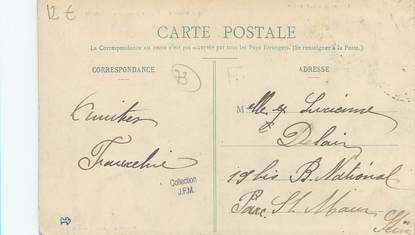 12 €
CARTE POSTALE
La Correspondance au verso n'est pas acceptée par tous les Pays Étrangers. (Se renseigner à la Poste.)
CORRESPONDANCE
73
Amitiés
Collection
J.F.M.
ADRESSE
Melle Lucienne
Delair
19 bis B. National
Parc St Maur
Seine